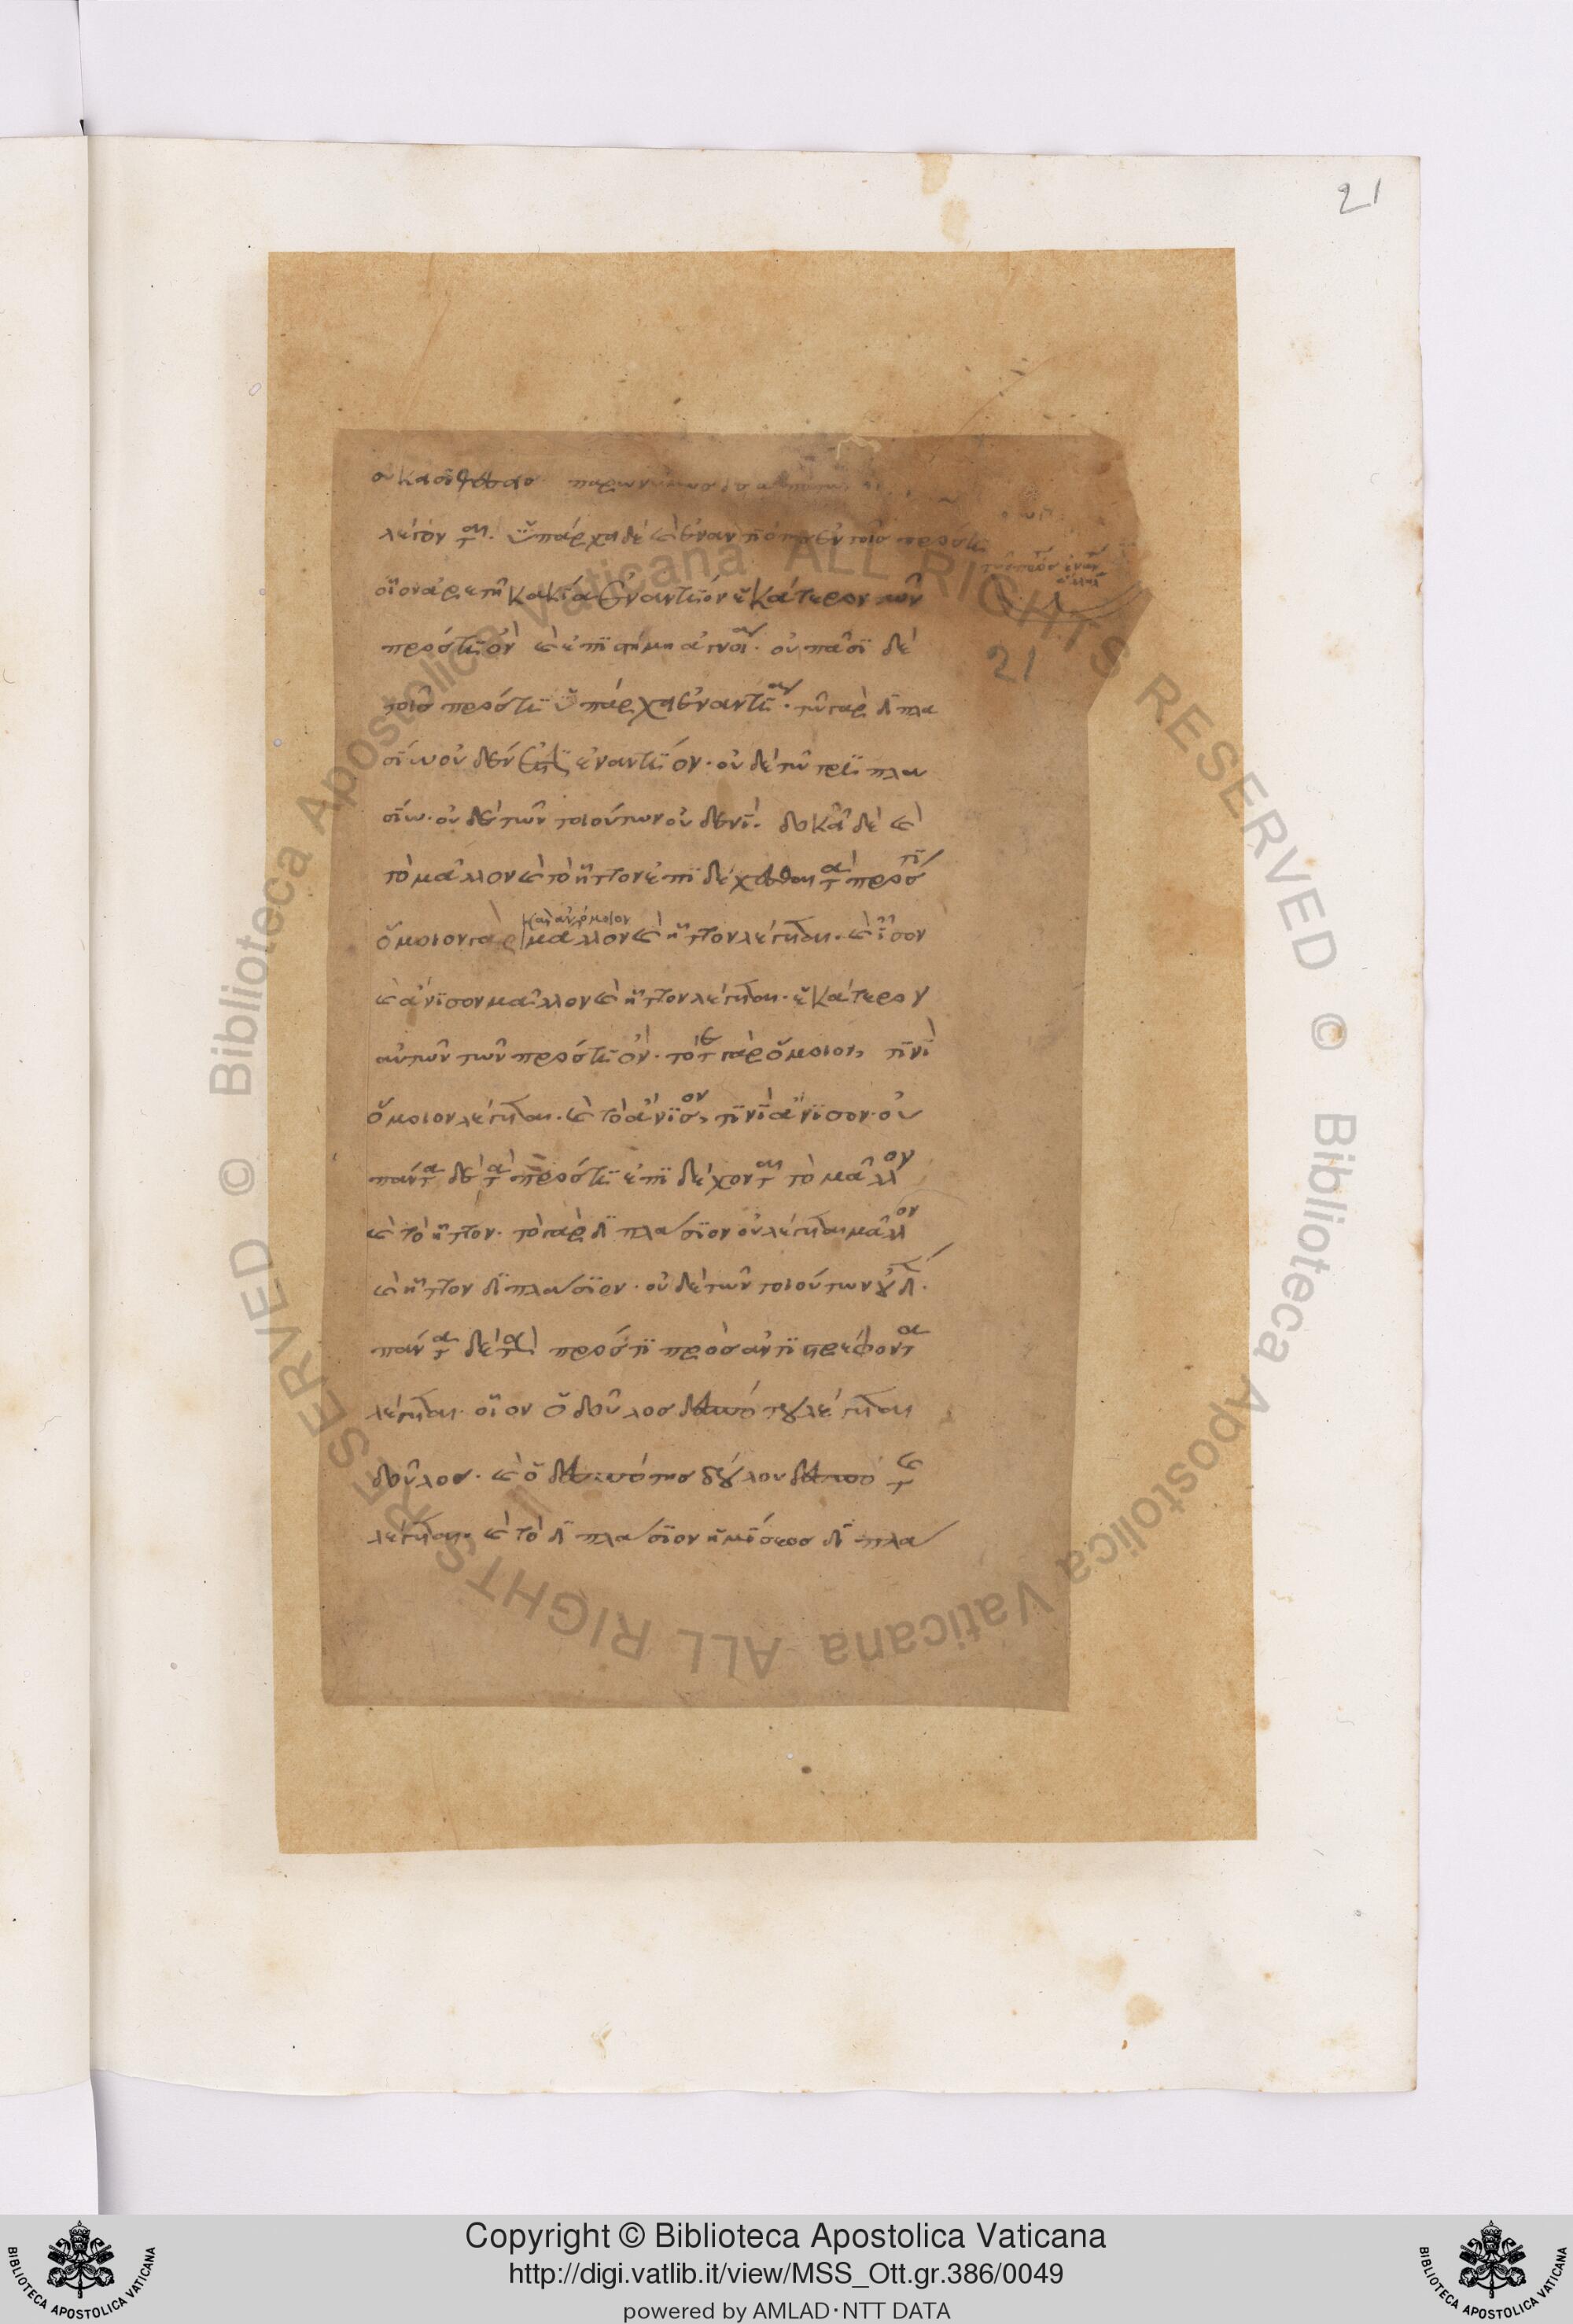 21
οὐκ εἰσὶ θέσεις παρωνύμως δὲ ἀπὸ τῶν
λέγονται. ὑπάρχει δὲ καὶ ἐναντιότης ἐν τοῖς πρός τι
οἷον ἀρετὴ κακίᾳ ἐναντίον ἑκάτερον τῶν
πρός τι ὂν καὶ ἐπιστήμη ἀγνοίᾳ. οὐ πᾶσι δὲ
τοῖς πρός τι ὑπάρχει ἐναντί. τῷ γὰρ διπλα
σίῳ οὐδέν ἐστιν ἐναντίον. οὐδὲ τῷ τριπλα
σίῳ. οὐδὲ τῶν τοιούτων οὐδενί. δοκεῖ δὲ καὶ
τὸ μᾶλλον καὶ τὸ ἧττον ἐπιδέχεσθαι τὰ πρός τι
ὅμοιον γὰρ καὶ ἀνόμοιον μᾶλλον καὶ ἧττον λέγεται. καὶ ἴσον
καὶ ἄνισον μᾶλλον καὶ ἧττον λέγεται. ἑκάτερον
αὐτῶν τῶν πρός τι ὄν. τό τε γὰρ ὅμοιον, τινὶ
ὅμοιον λέγεται. καὶ τὸ ἄνισον, τινὶ ἄνισον. οὐ
πάντα δὲ τὰ πρός τι ἐπιδέχονται τὸ μᾶλλον
καὶ τὸ ἧττον. τὸ γὰρ διπλάσιον οὐ λέγεται μᾶλλον
καὶ ἧττον διπλάσιον. οὐδὲ τῶν τοιούτων οὐδ.
πάντα δὲ τὰ πρός τι πρὸς ἀντιστρέφοντα
λέγεται. οἷον ὁ δοῦλος δεσπότου λέγεται
δοῦλος. καὶ ὁ δεσπότης δούλου δεσπότης
λέγεται. καὶ τὸ διπλάσιον ἡμίσεος διπλα
21
Copyright © Biblioteca Apostolica Vaticana
http://digi.vatlib.it/view/MSS_Ott.gr.386/0049
powered by AMLAD·NTT DATA
BIBLIOTECA APOSTOLICA VATICANA
BIBLIOTECA APOSTOLICA VATICANA
© Biblioteca Apostolica Vaticana ALL RIGHTS RESERVED © Biblioteca Apostolica Vaticana ALL RIGHTS RESERVED